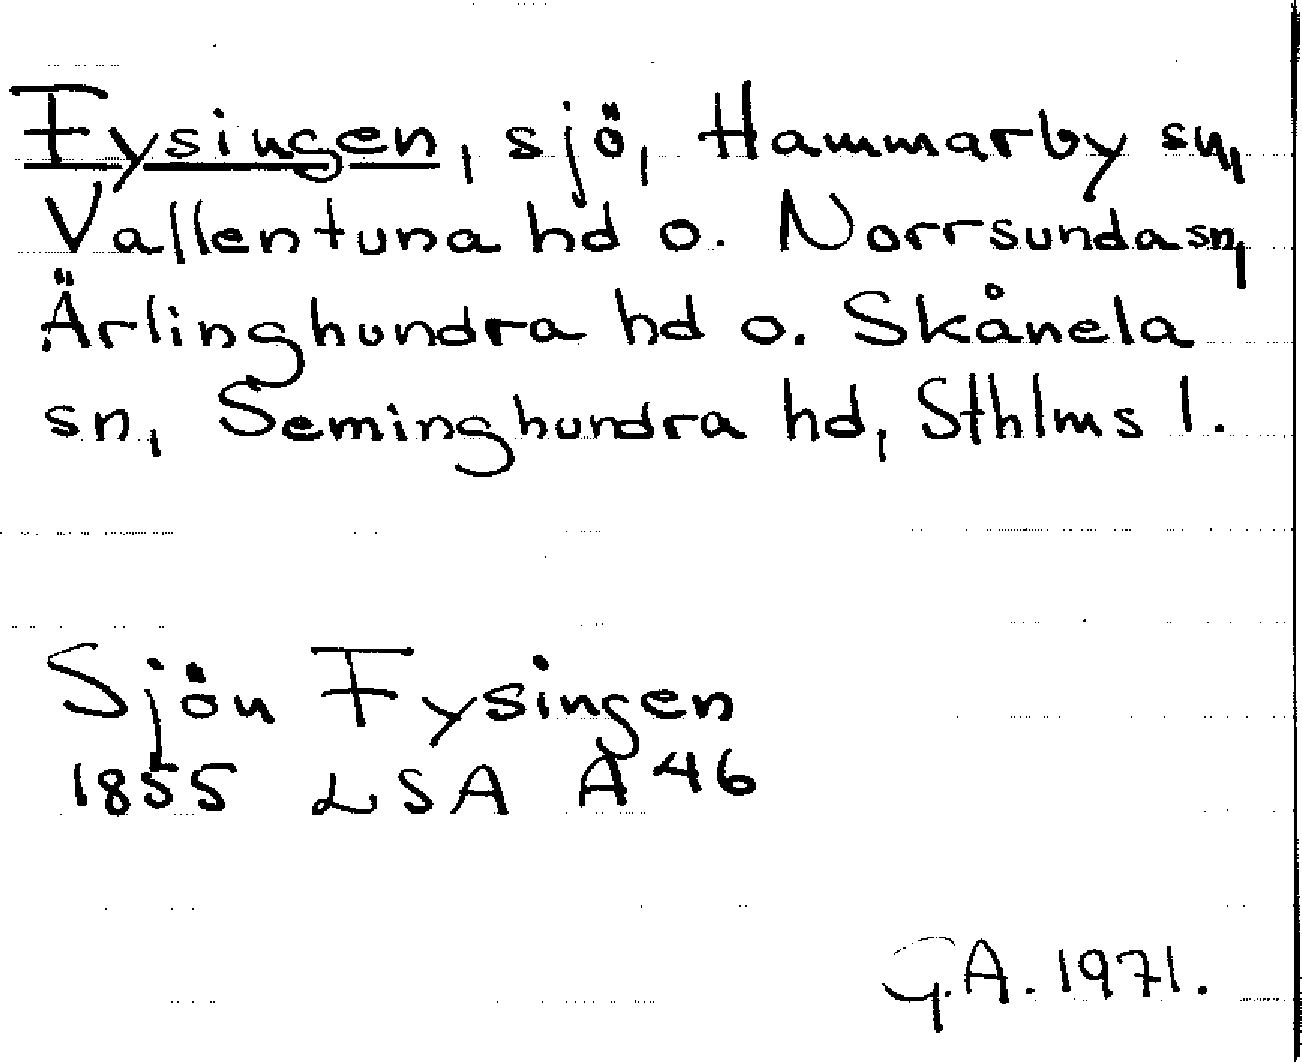 Fysingen, sjö, Hammarby sn,
Vallentuna hd o. Norrsunda sn,
Ärlinghundra hd o. Skånela
sn, Seminghundra hd, Sthlms l.
Sjön Fysingen
1855 LSA A 46
G.A. 1971.